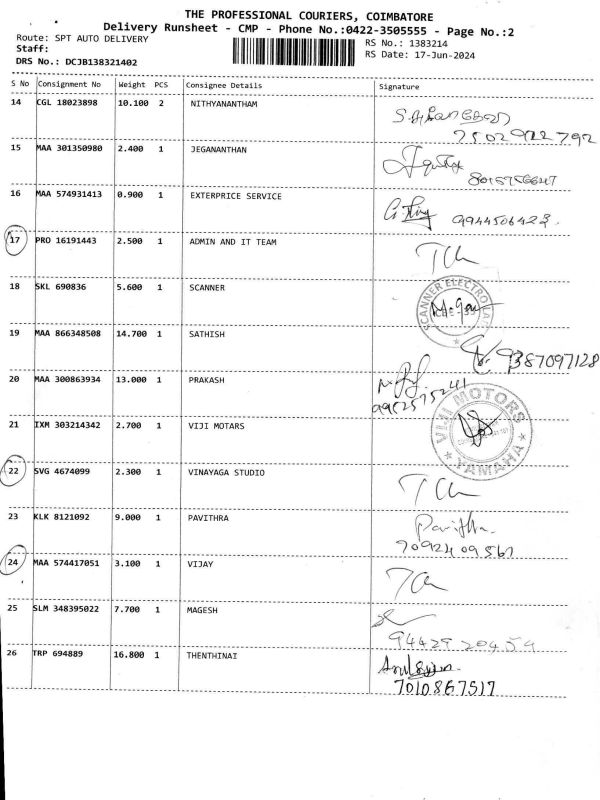 THE PROFESSIONAL COURIERS, COIMBATORE
Delivery Runsheet - CMP - Phone No.:0422-3505555 - Page No.:2
Route: SPT AUTO DELIVERY RS No.: 1383214
Staff: RS Date: 17-Jun-2024
DRS No.: DCJB138321402
S No Consignment No Weight PCS Consignee Details Signature
14 CGL 18023898 10.100 2 NITHYANANTHAM
15 MAA 301350980 2.400 1 JEGANANTHAN
16 MAA 574931413 0.900 1 EXTERPRICE SERVICE
9944506423.
17 PRO 16191443 2.500 1 ADMIN AND IT TEAM
18 SKL 690836 5.600 1 SCANNER
SCANNER ELECTRO
19 MAA 866348508 14.700 1 SATHISH
9387097128
20 MAA 300863934 13.000 1 PRAKASH
9952575241
21 IXM 303214342 2.700 1 VIJI MOTARS
VIJI MOTORS
YAMAHA
22 SVG 4674099 2.300 1 VINAYAGA STUDIO
23 KLK 8121092 9.000 1 PAVITHRA
Pavithra
7092409561
24 MAA 574417051 3.100 1 VIJAY
25 SLM 348395022 7.700 1 MAGESH
9442920454
26 TRP 694889 16.800 1 THENTHINAI
7010867517